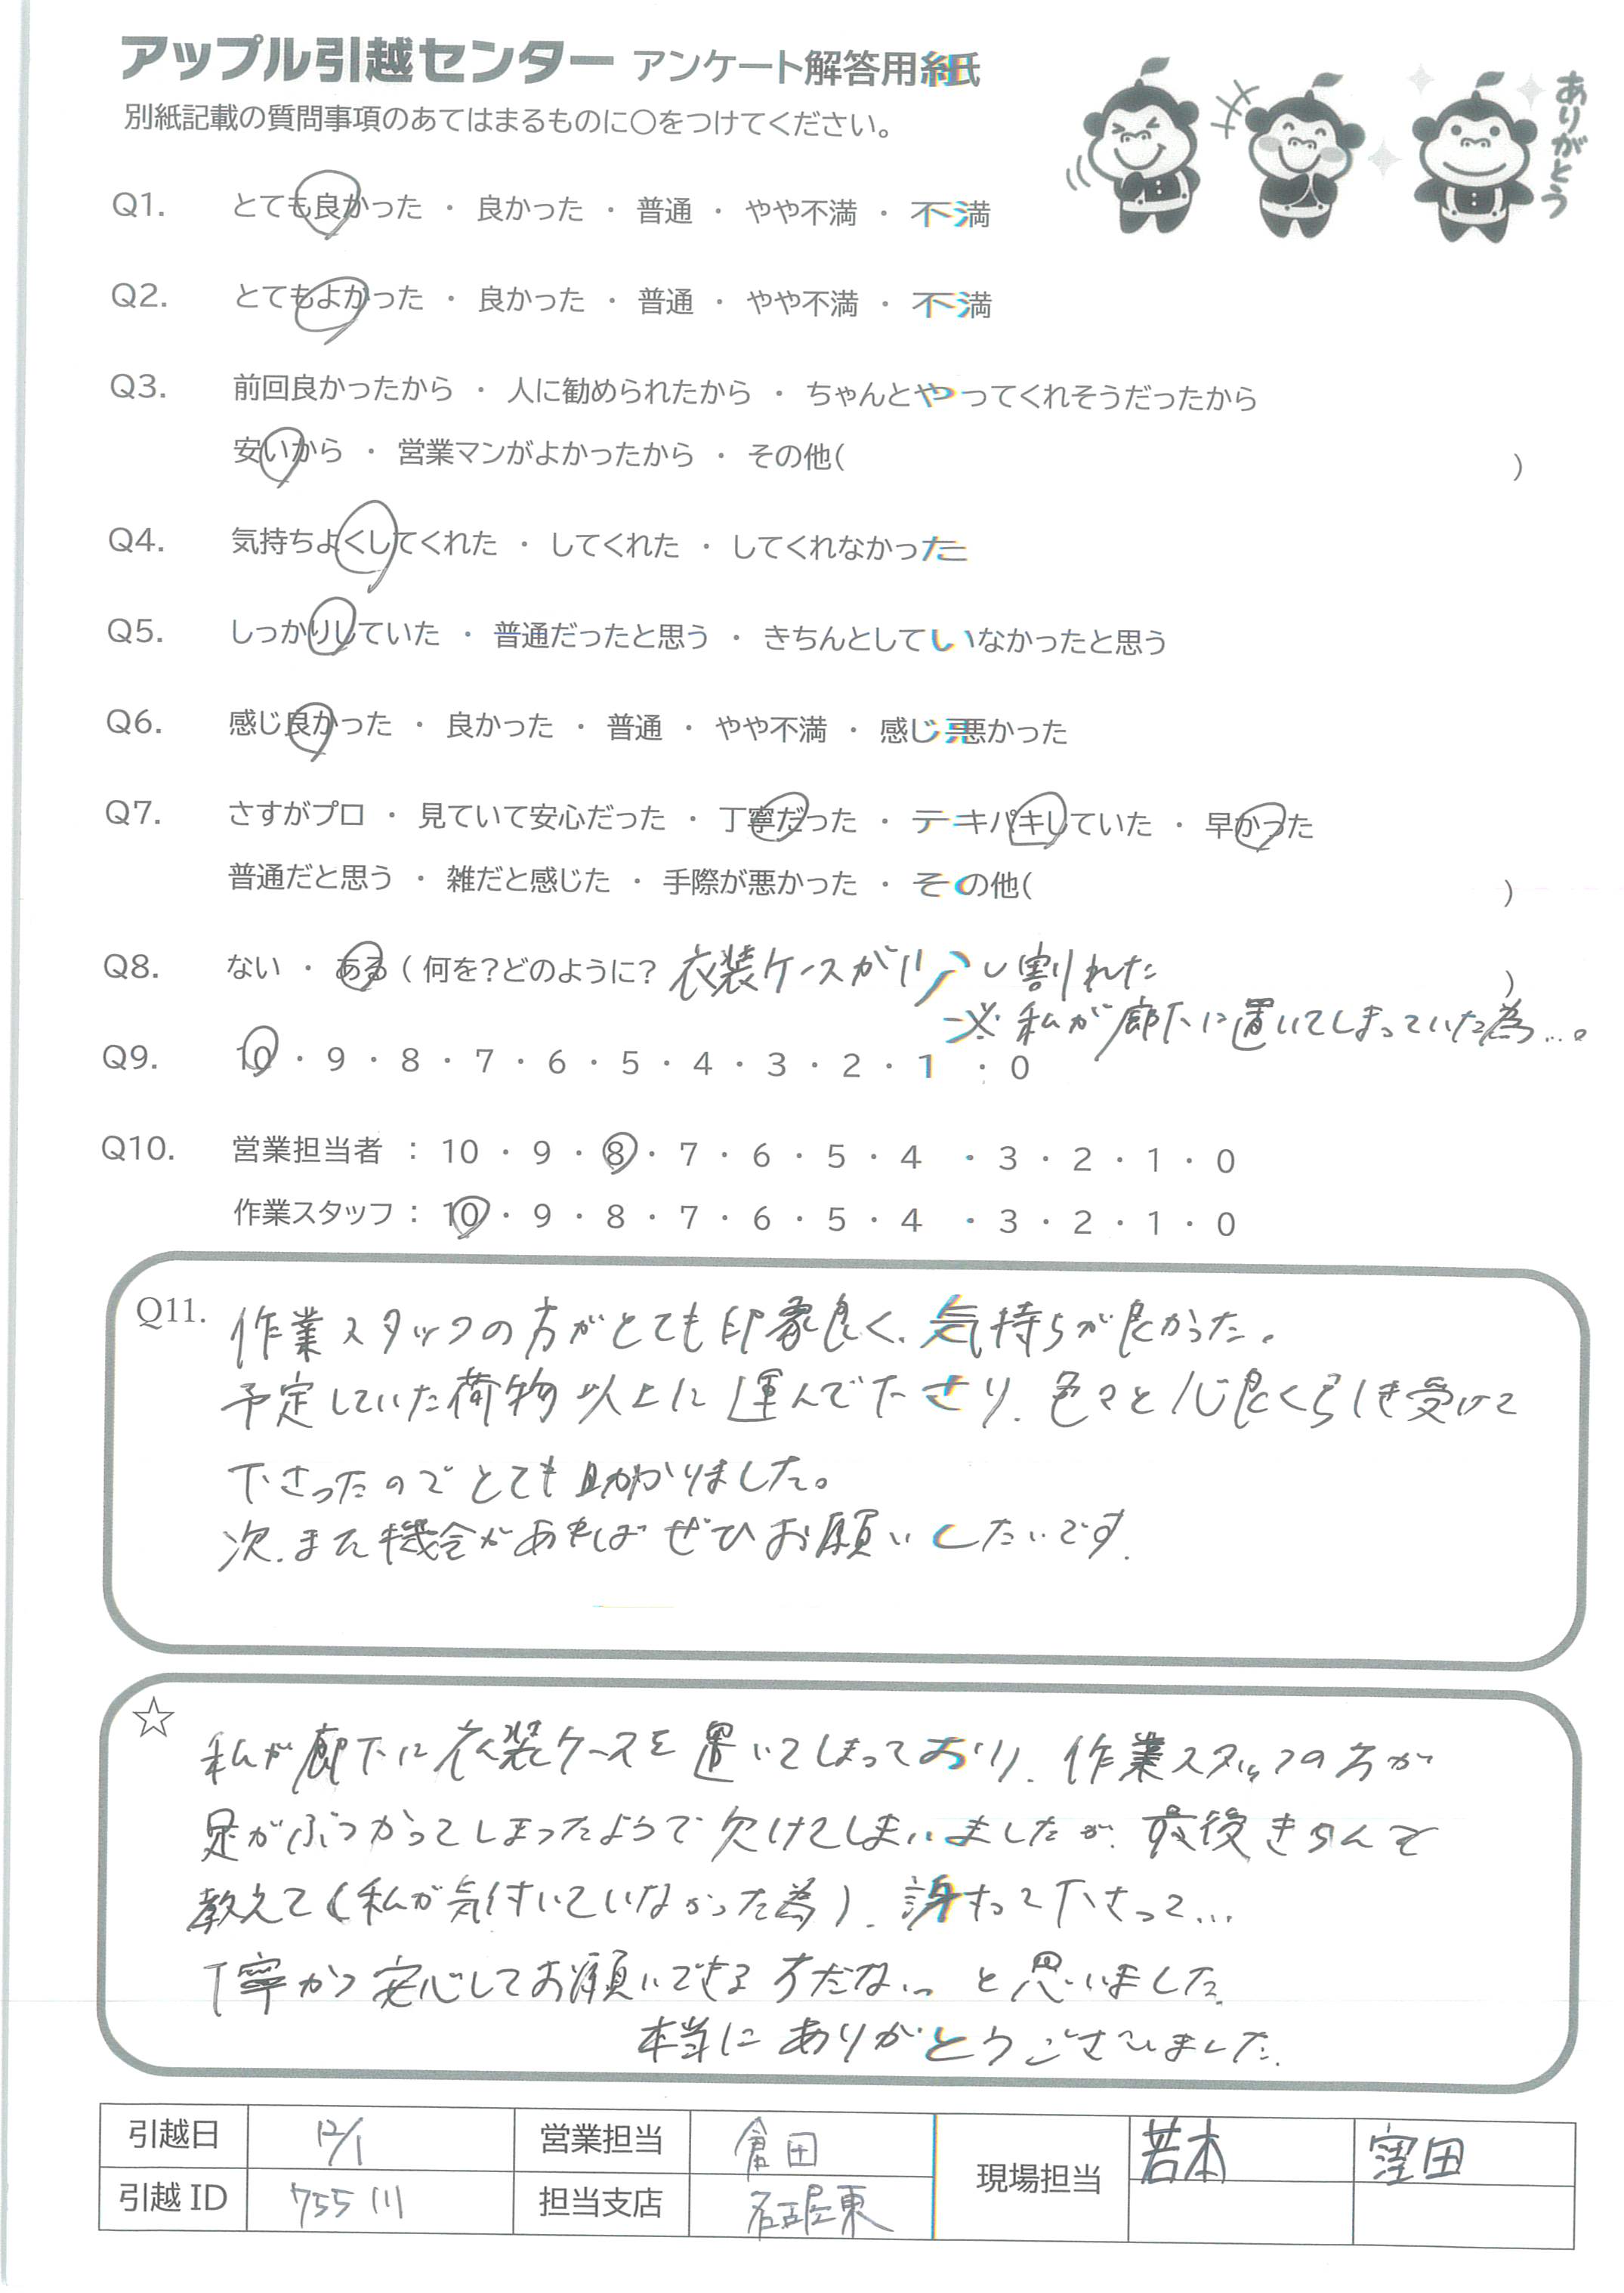 アップル引越センター アンケート解答用紙
ありがとう
別紙記載の質問事項のあてはまるものに○をつけてください。
Q1. とても良かった ・ 良かった ・ 普通 ・ やや不満 ・ 不満
Q2. とてもよかった ・ 良かった ・ 普通 ・ やや不満 ・ 不満
Q3. 前回良かったから ・ 人に勧められたから ・ ちゃんとやってくれそうだったから
安いから ・ 営業マンがよかったから ・ その他( )
Q4. 気持ちよくしてくれた ・ してくれた ・ してくれなかった
Q5. しっかりしていた ・ 普通だったと思う ・ きちんとしていなかったと思う
Q6. 感じ良かった ・ 良かった ・ 普通 ・ やや不満 ・ 感じ悪かった
Q7. さすがプロ ・ 見ていて安心だった ・ 丁寧だった ・ テキパキしていた ・ 早かった
普通だと思う ・ 雑だと感じた ・ 手際が悪かった ・ その他( )
Q8. ない ・ ある ( 何を?どのように? 衣装ケースが少し割れた )
※私が廊下に置いてしまっていた為…。
Q9. 10 ・ 9 ・ 8 ・ 7 ・ 6 ・ 5 ・ 4 ・ 3 ・ 2 ・ 1 ・ 0
Q10. 営業担当者 : 10 ・ 9 ・ 8 ・ 7 ・ 6 ・ 5 ・ 4 ・ 3 ・ 2 ・ 1 ・ 0
作業スタッフ : 10 ・ 9 ・ 8 ・ 7 ・ 6 ・ 5 ・ 4 ・ 3 ・ 2 ・ 1 ・ 0
Q11. 作業スタッフの方がとても印象良く、気持ちが良かった。
予定していた荷物以上に運んで下さり、色々と心良く引き受けて
下さったのでとても助かりました。
次、また機会があればぜひお願いしたいです。
☆
私が廊下に衣装ケースを置いてしまっており、作業スタッフの方が
足がぶつかってしまったようで欠けてしまいましたが、最後きちんと
教えて(私が気付いていなかった為)、謝って下さって…
丁寧かつ安心してお願いできる方だなぁっと思いました。
本当にありがとうございました。
引越日 12/1 営業担当 倉田 現場担当 若本 窪田
引越ID 755111 担当支店 名古屋東